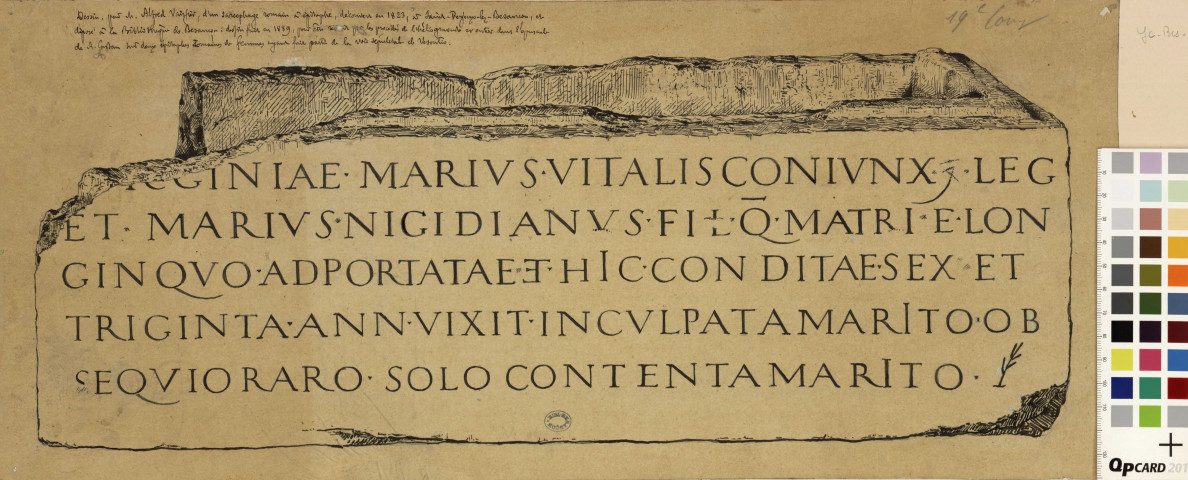 Dessin, par M. Alfred Vaissier, d'un sarcophage romain à épitaphe, découvert en 1823, à Saint-Besançon, et
déposé à la Bibliothèque de Besançon : dessin fait en 1889, pour être par les procédés de
de M. sur deux épitaphes romaines de femmes ayant fait partie de la voie sépulcrale de Vesontio.
19e
Yc. Bes.
GINIAE · MARIVS · VITALIS CONIVNX · LEG
ET · MARIVS · NIGIDIANVS · FIL · Q · MATRI · E · LON
GINQVO · ADPORTATAE · ET · HIC · CONDITAE · SEX · ET
TRIGINTA · ANN · VIXIT · INCVLPATA MARITO · OB
SEQVIO RARO · SOLO CONTENTA MARITO ·
QPCARD 201